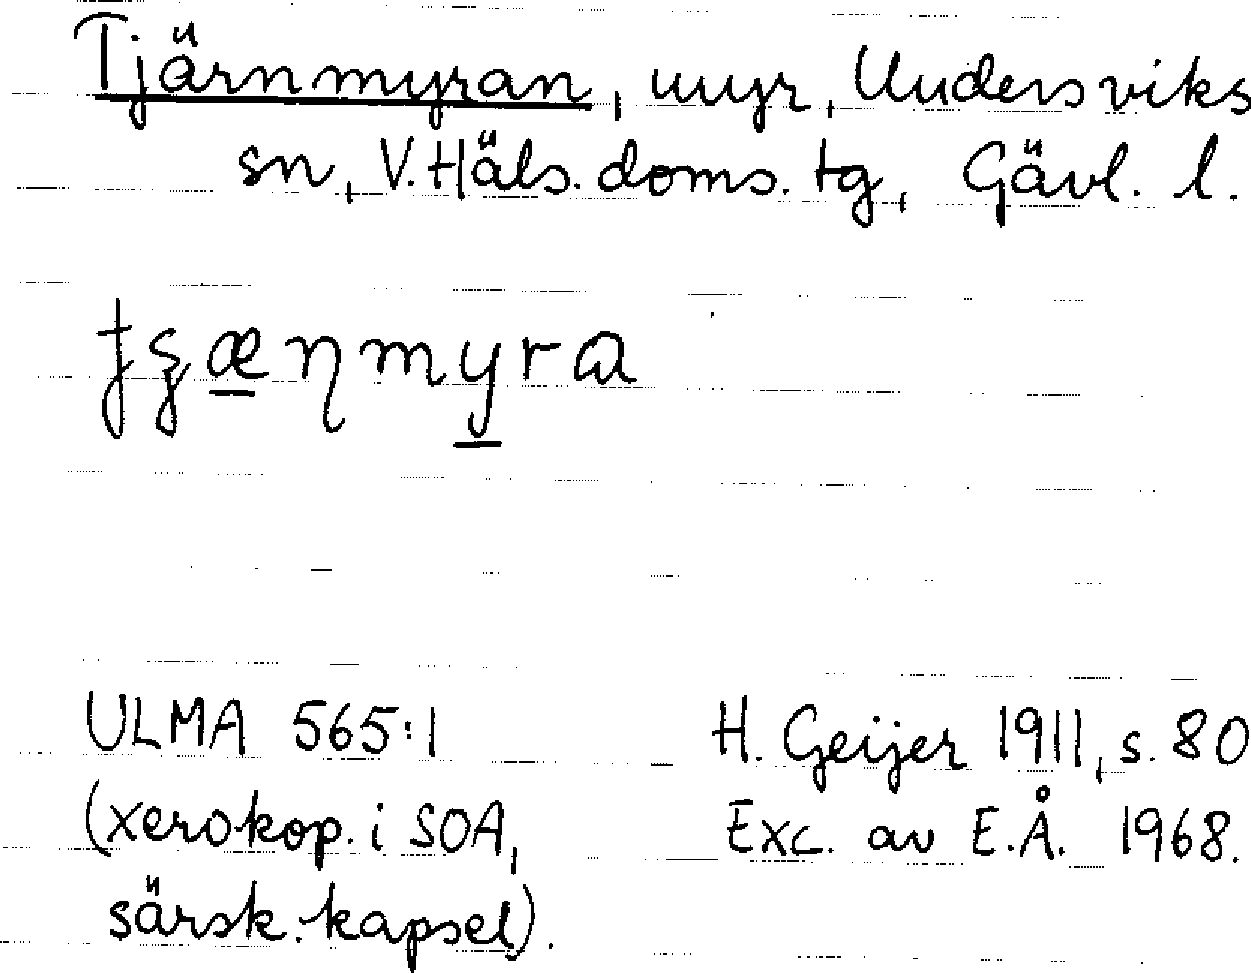 Tjärnmyran, myr, Undersviks
sn, V. Häls. doms. tg, Gävl. l.
myra
ULMA 565:1
H. Geijer 1911, s. 80
(xerokop. i SOA,
Exc. av E.Å. 1968.
särsk. kapsel).